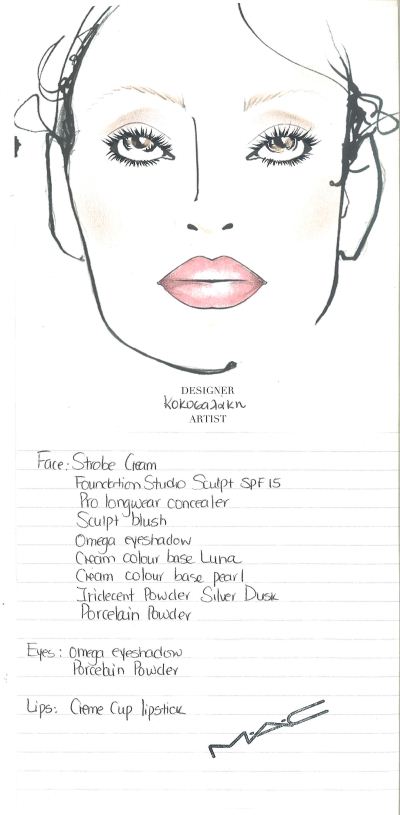 DESIGNER
Kokosalakn
ARTIST
Face: Strobe Cream
Foundation Studio Sculpt SPF 15
Pro longwear concealer
Sculpt blush
Omega eyeshadow
Cream colour base Luna
Cream colour base pearl
Iridecent Powder Silver Dusk
Porcelain Powder
Eyes: omega eyeshadow
Porcelain Powder
Lips: Creme Cup lipstick
M·A·C